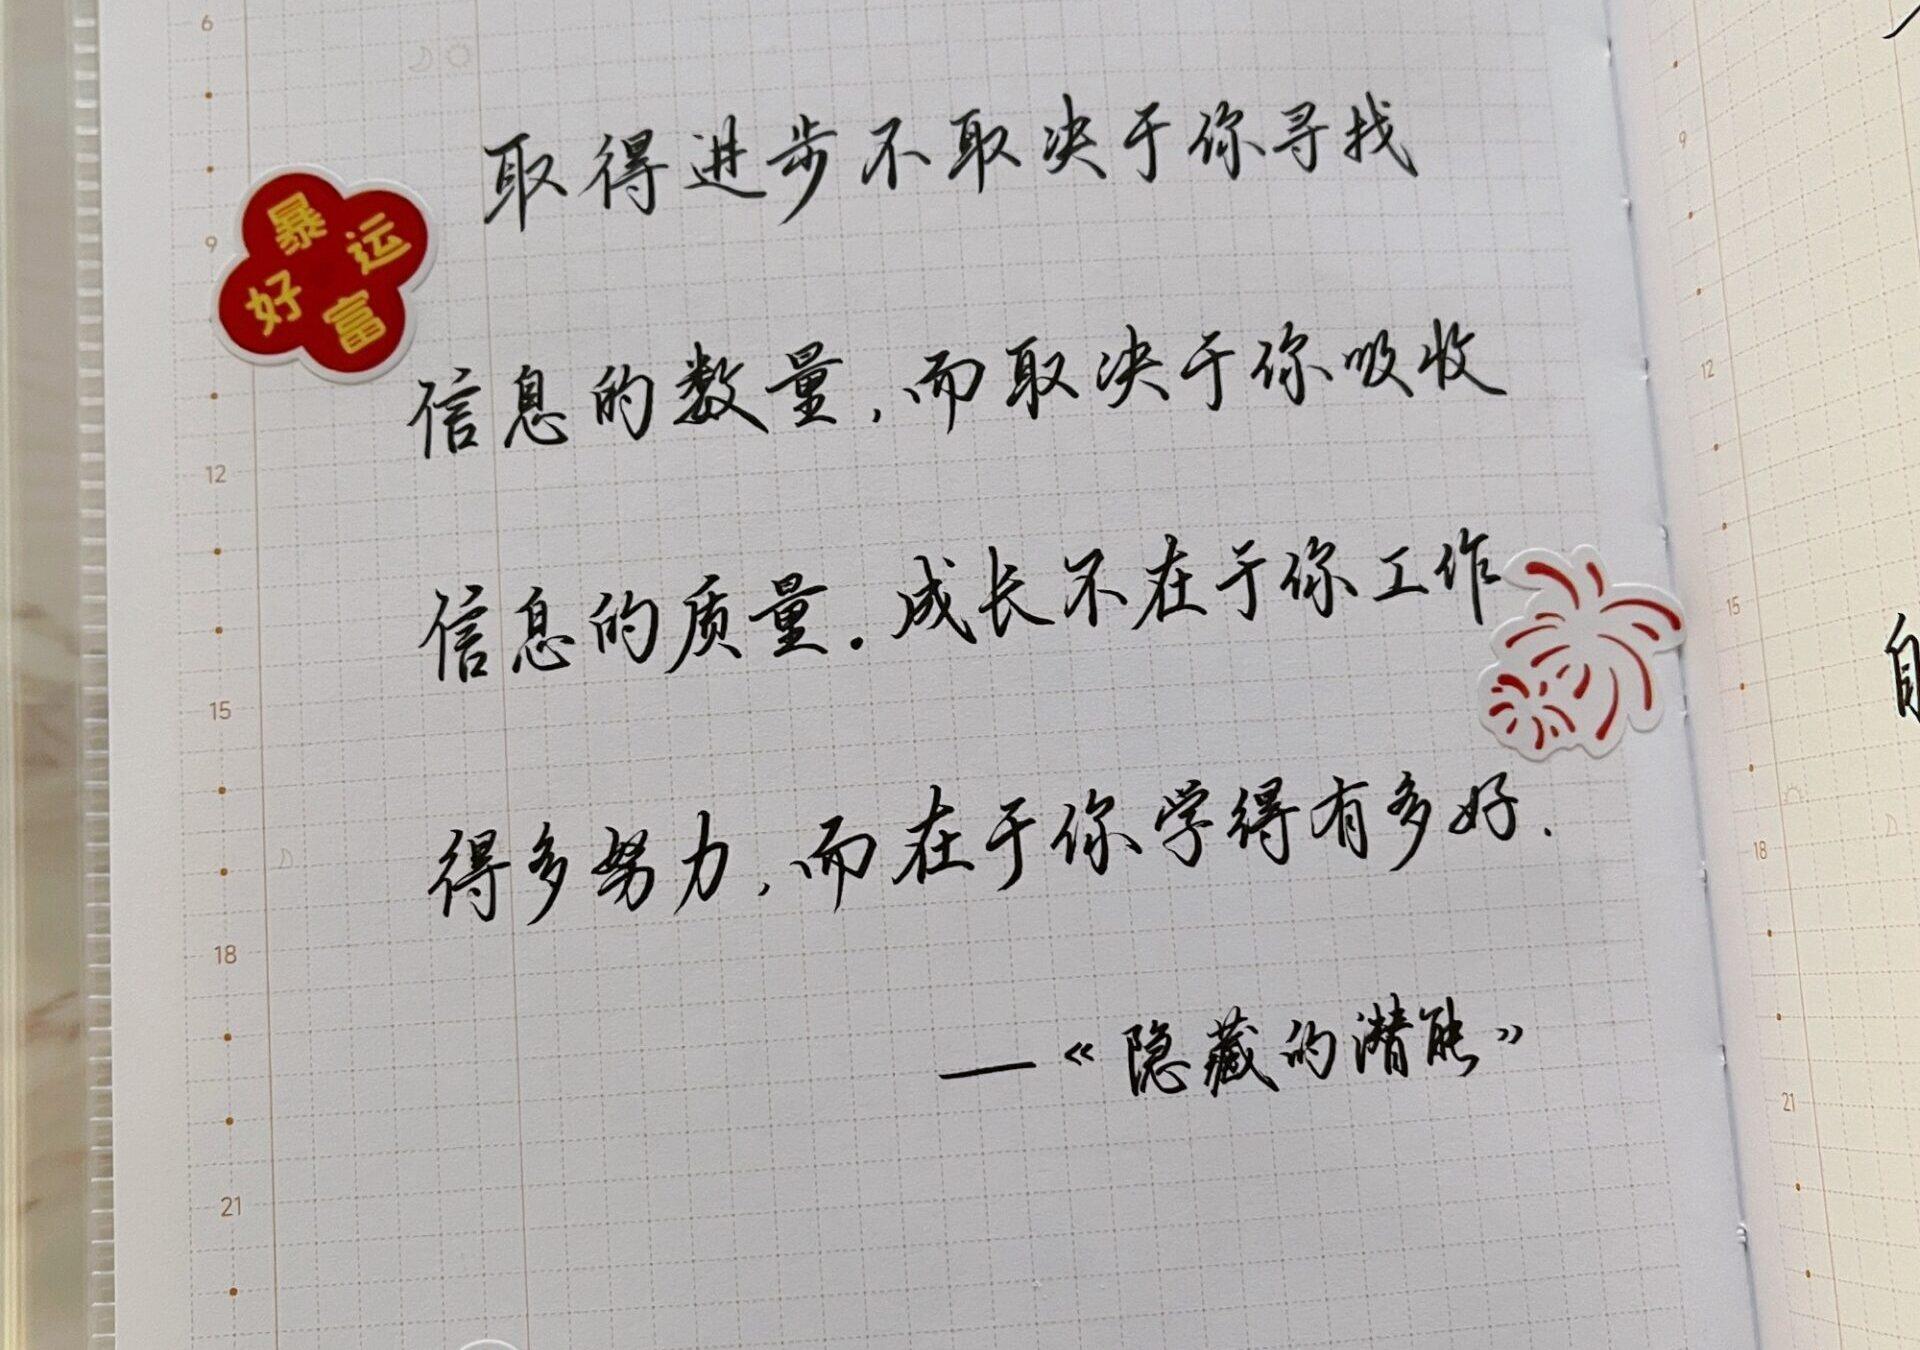 取得进步不取决于你寻找
信息的数量,而取决于你吸收
信息的质量.成长不在于你工作
得多努力,而在于你学得有多好.
—《隐藏的潜能》
暴
好运
富
6
9
12
15
18
21
9
12
15
18
21